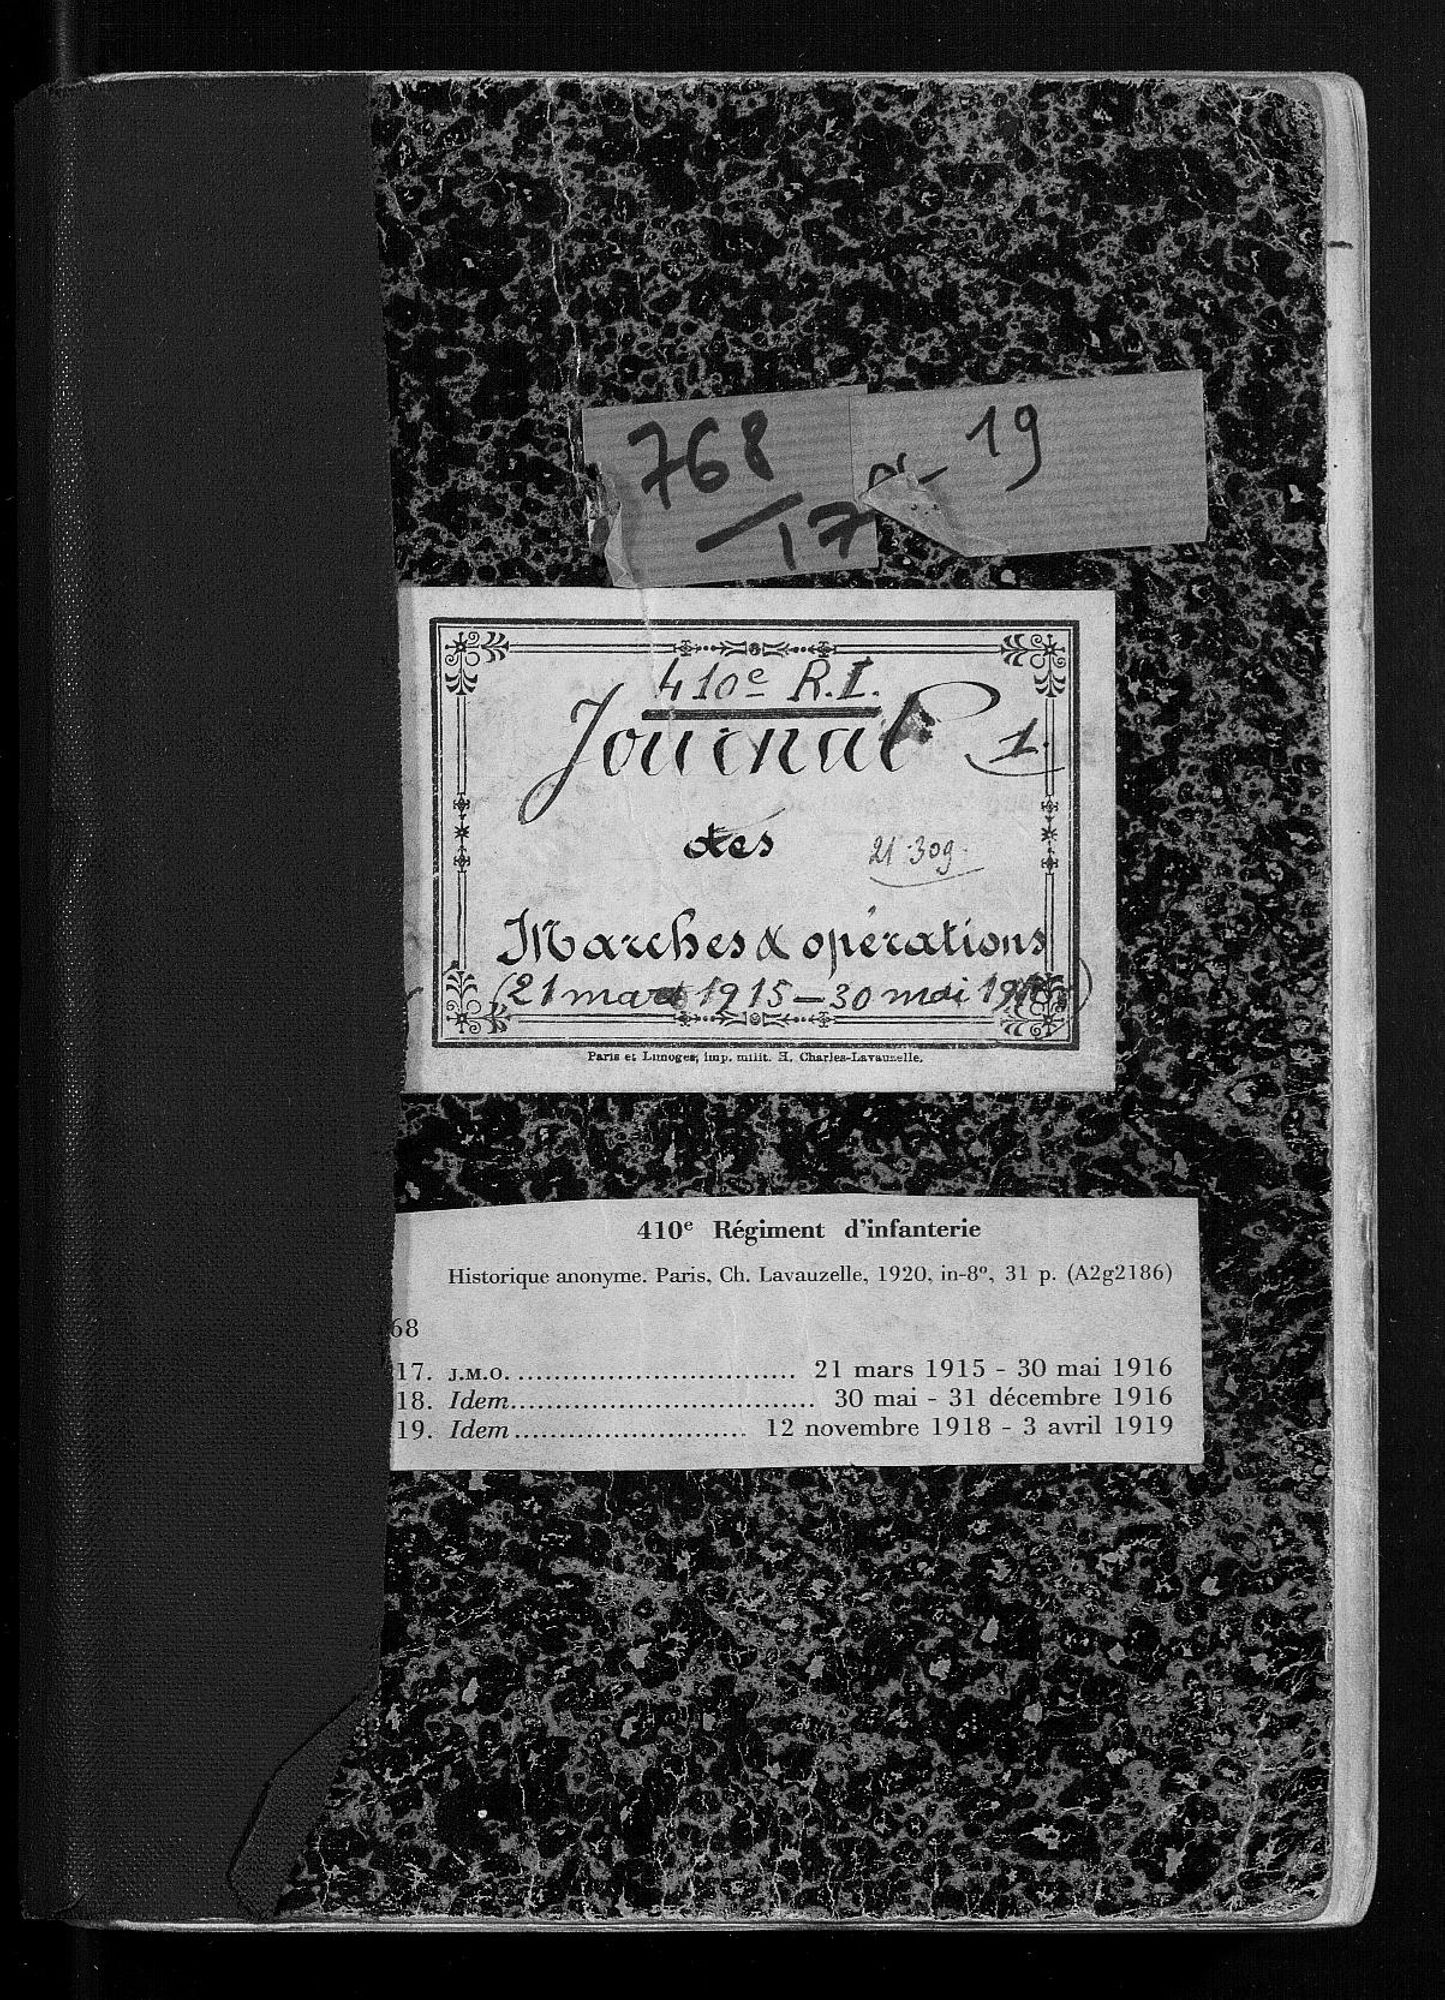 768
17 à - 19
410e R.I.
Journal 1.
des
21.309.
Marches & opérations
(21 mars 1915 - 30 mai 1916)
Paris et Limoges, imp. milit. H. Charles-Lavauzelle.
410e Régiment d'infanterie
Historique anonyme. Paris, Ch. Lavauzelle, 1920, in-8º, 31 p. (A2g2186)
68
17. J.M.O. ............................... 21 mars 1915 - 30 mai 1916
18. Idem.................................. 30 mai - 31 décembre 1916
19. Idem.......................... 12 novembre 1918 - 3 avril 1919